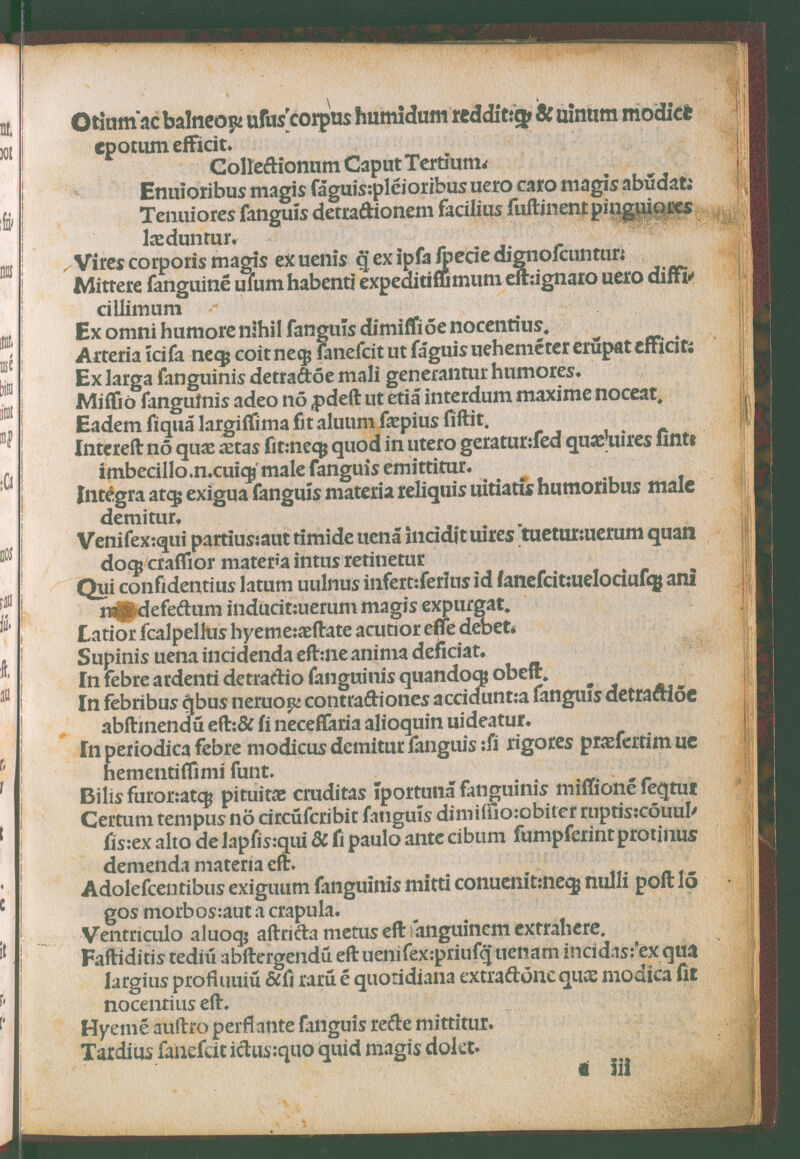 Otium ac balneoꝝ uſus corpus humidum reddit:qꝫ & uinum modice
epotum efficit.
Collectionum Caput Tertium.
Enuioribus magis ſáguis:pléioribus uero caro magis abūdat:
Tenuiores ſanguīs detractionem facilius ſuſtinent pinguiores
læduntur.
Vires corporis magis ex uenis q̄ ex ipſa ſpecie dignoſcuntur:
Mittere ſanguinē uſum habenti expeditiſſimum eſt:ignaro uero diffi⸗
cillimum
Ex omni humore nihil ſanguīs dimiſſiōe nocentius.
Arteria īciſa neqꝫ coit neqꝫ ſaneſcit ut ſāguis uehemēter erūpat efficit:
Ex larga ſanguinis detractōe mali generantur humores.
Miſſio ſanguinis adeo nō ꝓdeſt ut etiā interdum maxime noceat.
Eadem ſiquā largiſſima fit aluum ſæpius ſiſtit.
Intereſt nō quæ ætas ſit:neqꝫ quod in utero geratur:ſed quæ uires ſint:
imbecillo.n.cuiqꝫ male ſanguis emittitur.
Integra atqꝫ exigua ſanguīs materia reliquis uitiatis humoribus male
demitur.
Veniſex:qui partius:aut timide uenā incidit uires tuetur:uerum quan
doqꝫ craſſior materia intus retinetur
Qui confidentius latum uulnus infert:ſerius id ſaneſcit:uelociuſqꝫ ani
defectum inducit:uerum magis expurgat.
Latior ſcalpellus hyeme:æſtate acutior eſſe debet.
Supinis uena incidenda eſt:ne anima deficiat.
In febre ardenti detractio ſanguinis quandoqꝫ obeſt.
In febribus q̇bus neruoꝝ contractiones accidunt:a ſanguīs detractiōe
abſtinendū eſt:& ſi neceſſaria alioquin uideatur.
In periodica febre modicus demitur ſanguis :ſi rigores præſertim ue
hementiſſimi ſunt.
Bilis furor:atqꝫ pituitæ cruditas īportunā ſanguinis miſſionē ſeq̇tur
Certum tempus nō circūſcribit ſanguīs dimiſſio:obiter ruptis:cōuul⸗
ſis:ex alto de lapſis:qui & ſi paulo ante cibum ſumpſerint protinus
demenda materia eſt.
Adoleſcentibus exiguum ſanguinis mitti conuenit:neqꝫ nulli poſt lō
gos morbos:aut a crapula.
Ventriculo aluoqꝫ aſtricta metus eſt ſanguinem extrahere.
Faſtiditis tediū abſtergendū eſt ueniſex:priuſq̄ uenam incidas:ex qua
largius profluuiū & ſi rarū ē quotidiana extractōne quæ modica ſit
nocentius eſt.
Hyemē auſtro perflante ſanguis recte mittitur.
Tardius ſaneſcit ictus:quo quid magis dolet.
a iii